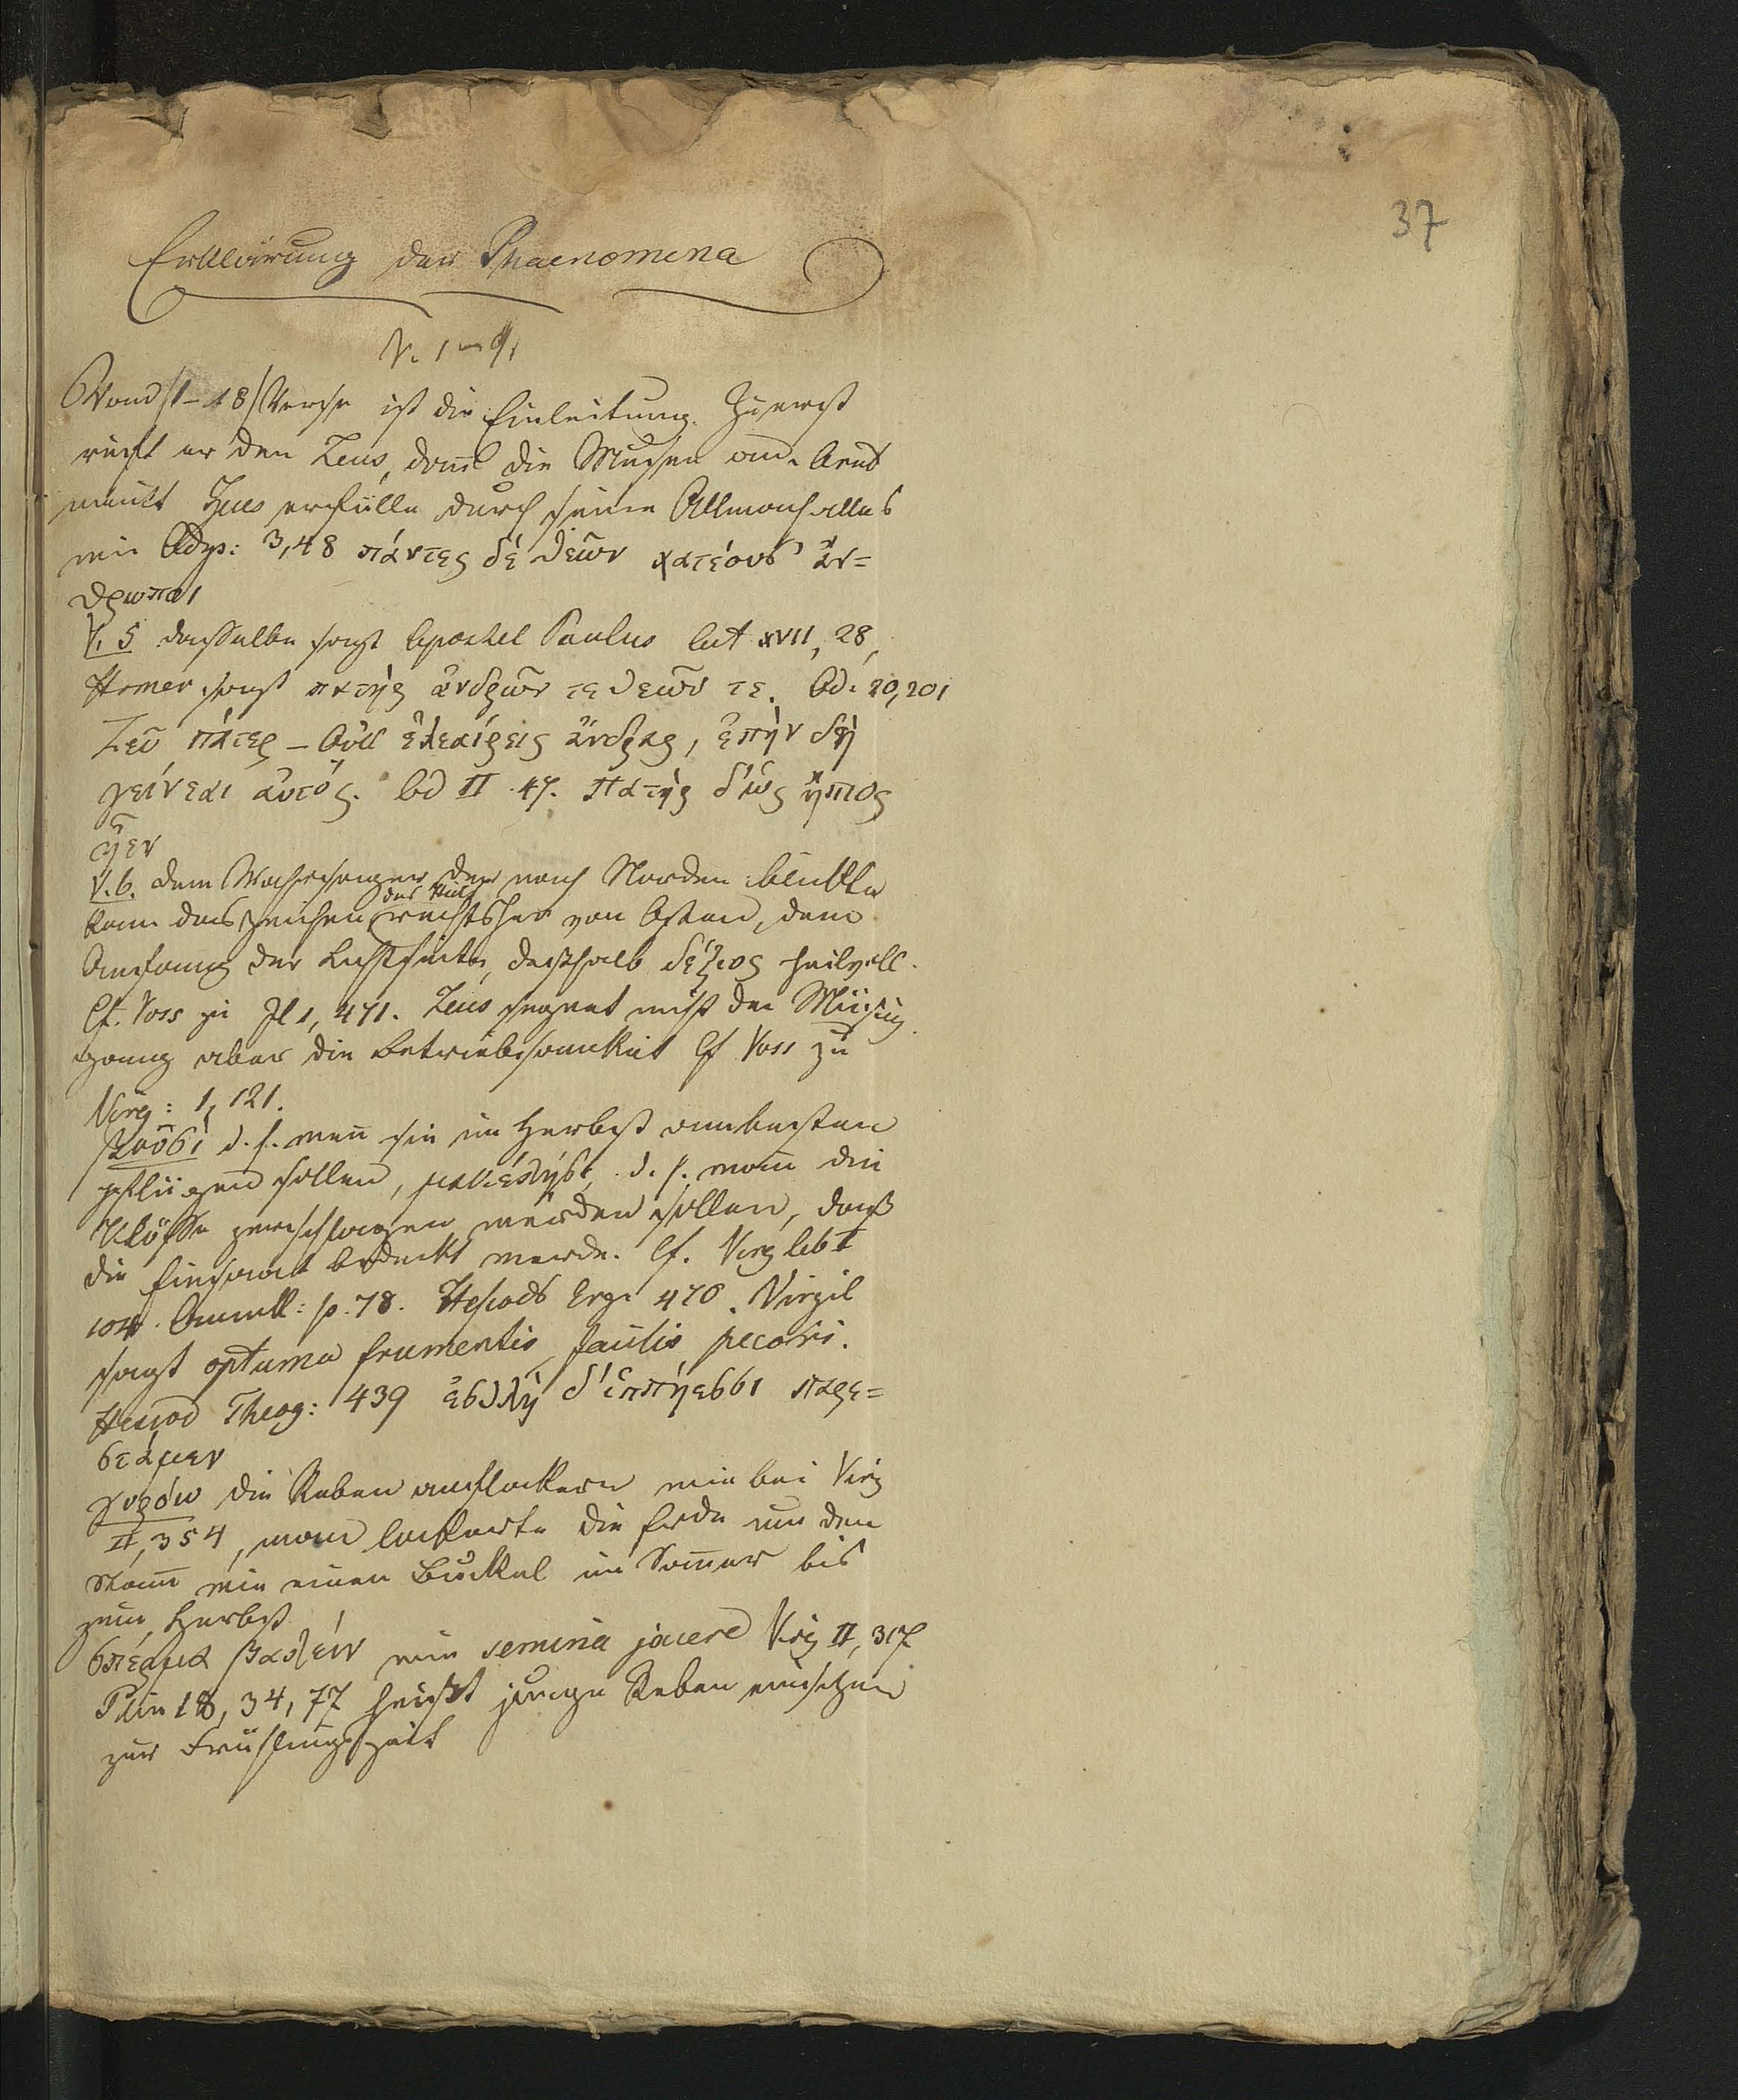 37
Erklärung der Phaenomena
V. 1 – 9,
Von d 1–18 Verse ist die Einleitung. Zuerst
ruft er den Zeus, dann die Musen an. Arat
meint Zeus erfülle durch seine Allmacht alles
wie Odys: 3,48 πάντες δέ θεῶν χατέουσ' ἄν=
θρωποι
V. 5 dasselbe sagt Apostel Paulus Act XVII, 28,
Homer sagt πατὴρ ἀνδρῶν τε θεῶν τε. Od. 20,201
Ζεῦ πάτερ – Οὐκ ἐλεαίρεις ἄνδρας, ἐπὴν δὴ
γείνεαι ἀυτός. Od II 47. Πατὴρ δ'ὡς ἤπιος
ἦεν
V. 6. dem Wahrsager der nach Norden blickte
kam das Zeichen rechtsher von Osten, dem
Anfang der Lichtseite, deshalb δέξιος heilvoll.
Cf. Voss zu Il 1, 471. Zeus segnet nicht den Müssig
gang aber die Betriebsamkeit Cf Voss zu
Virg: 1, 121.
βουσι d. h. wann sie im Herbst am besten
pflügen sollen, μακέλησι, d. h. wann die
Klösse zerschlagen werden sollen, dass
die Einsaat bedeckt werde. Cf. Virg lib I
104. Anmk: p. 78. Hesiods Erg. 470. Virgil
sagt optuma frumentis, pecori.
Hesiod Theog: 439 ἐσθλὴ δ'ἱππήεσσι παρε=
στάμεν
γυρόω die Reben auflockern wie bei Virg
II, 354, man lockerte die Erde um den
Stamm wie einen Buckel im Sommer bis
zum Herbst
σπέρμα βαλεῖν wie semina jacere Virg II, 317
Plin 18, 34, 77 heisst junge Reben einsetzen
zur Frühlingszeit